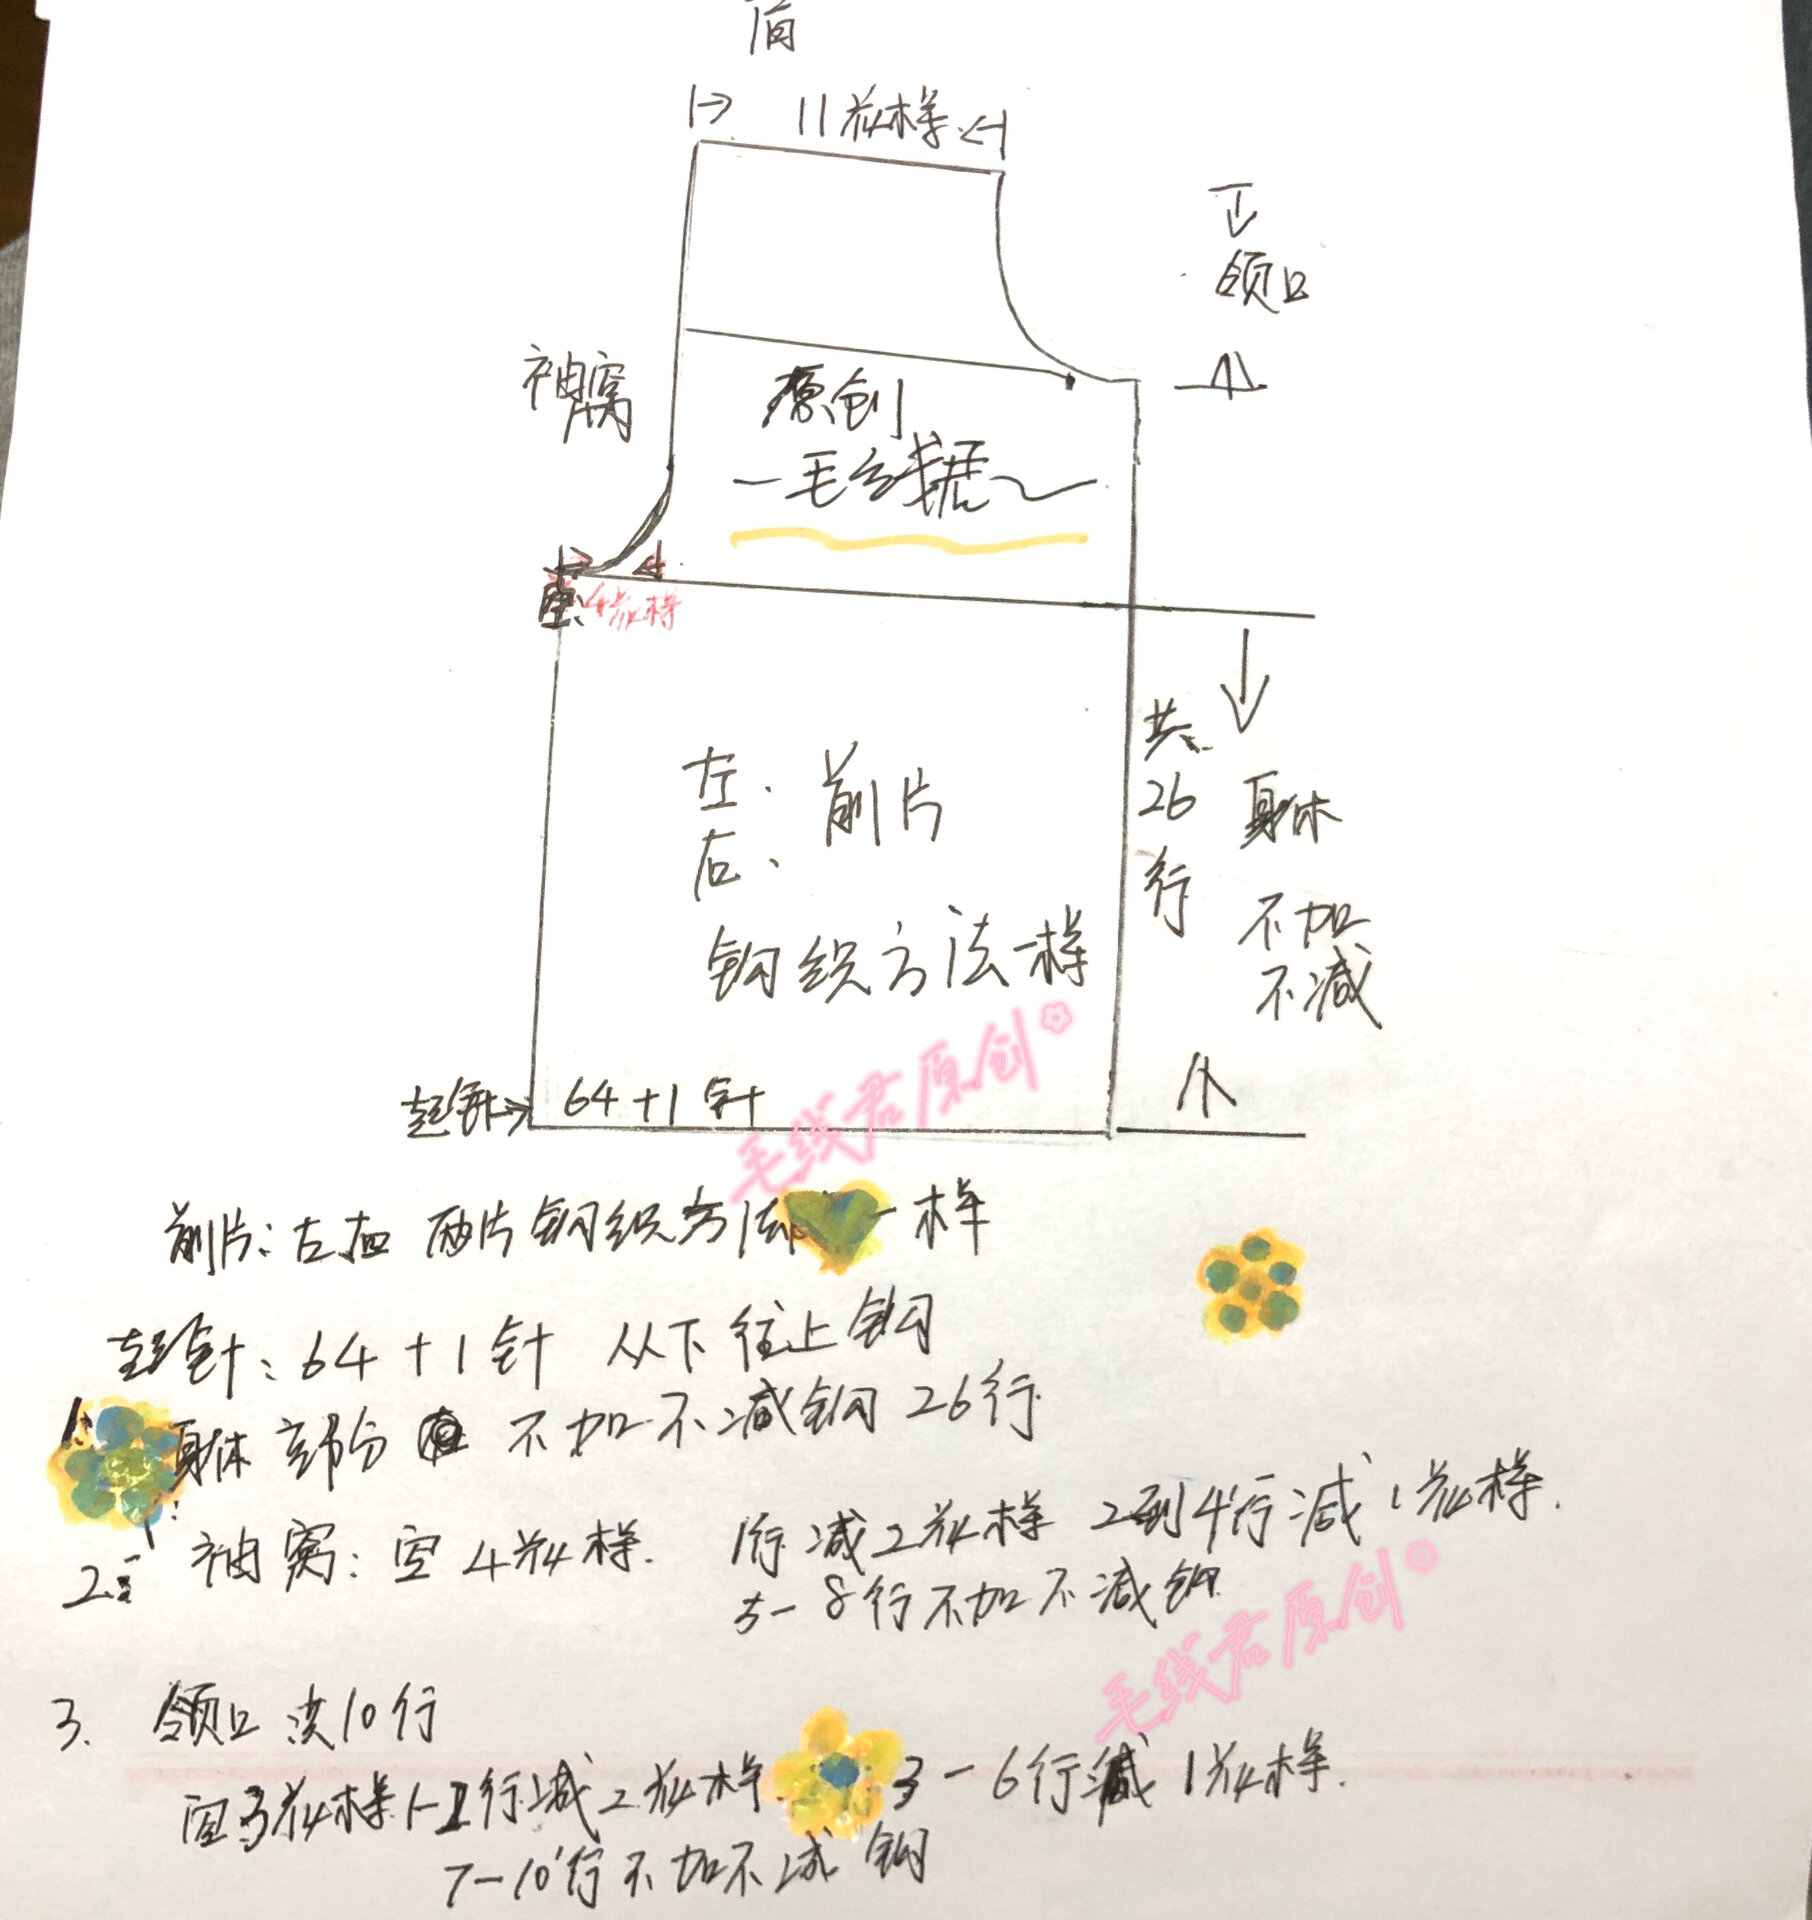 肩
11花样
领口
袖窝
原创
毛线君
空4花样
共26行
身体
不加
不减
左、前片
右、
钩织方法一样
起针→ 64+1针
毛线君原创
前片:左右两片钩织方法一样
起针:64+1针 从下往上钩
1: 身体部分 不加不减钩26行
2: 袖窝:空4花样. 1行减2花样 2到4行减1花样.
5-8行不加不减钩
毛线君原创
3. 领口共10行
空3花样 1-2行减2花样 3-6行减1花样.
7-10行不加不减钩